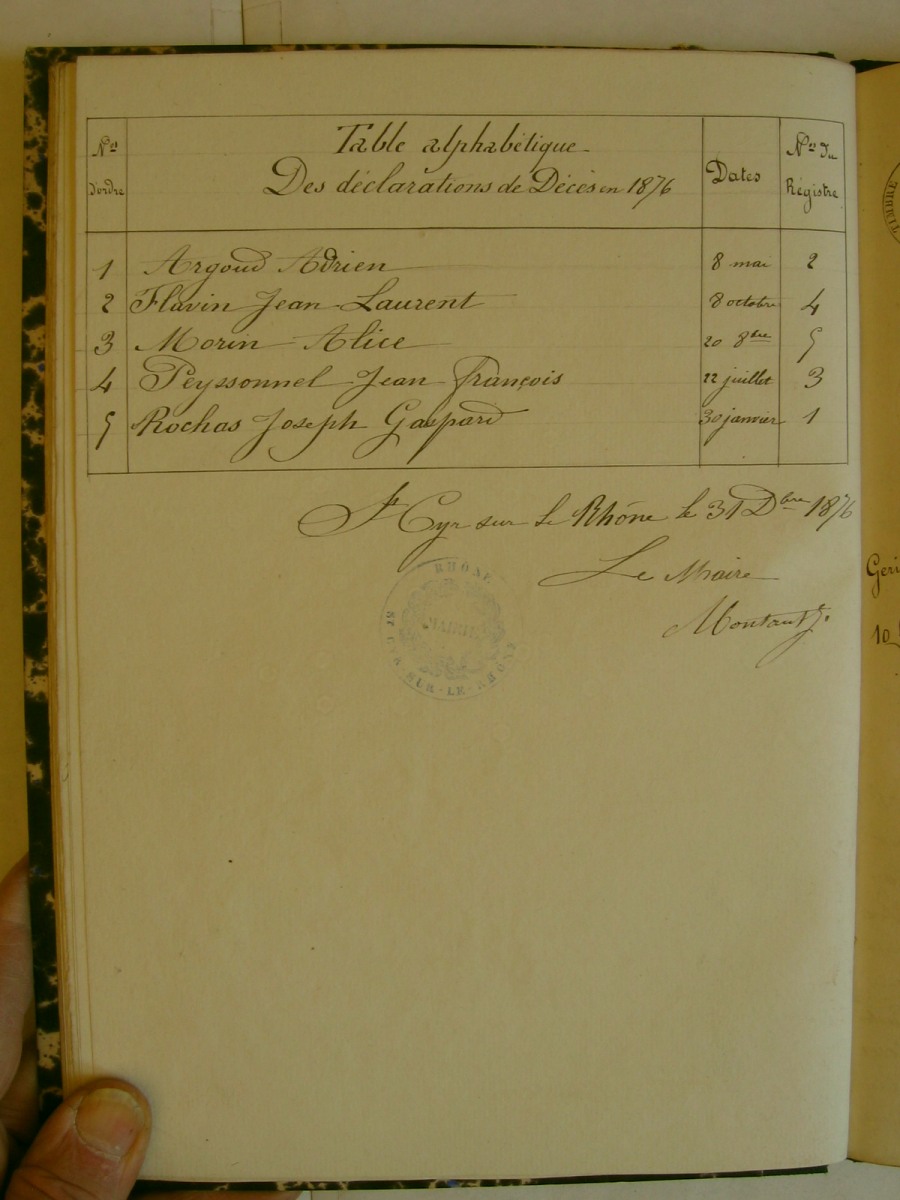 Nos d'ordre | Table alphabétique | Dates | Nos du Régistre
Des déclarations de Décès en 1876
1 Argoud Adrien 8 mai 2
2 Flavin Jean Laurent 8 octobre 4
3 Morin Alice 20 8bre 5
4 Peyssonnel Jean François 22 juillet 3
5 Rochas Joseph Gaspard 30 janvier 1
St Cyr sur le Rhône le 31 Dbre 1876
Le Maire
RHÔNE
MAIRIE
ST CYR SUR-LE-RHÔNE
TIMBRE
10